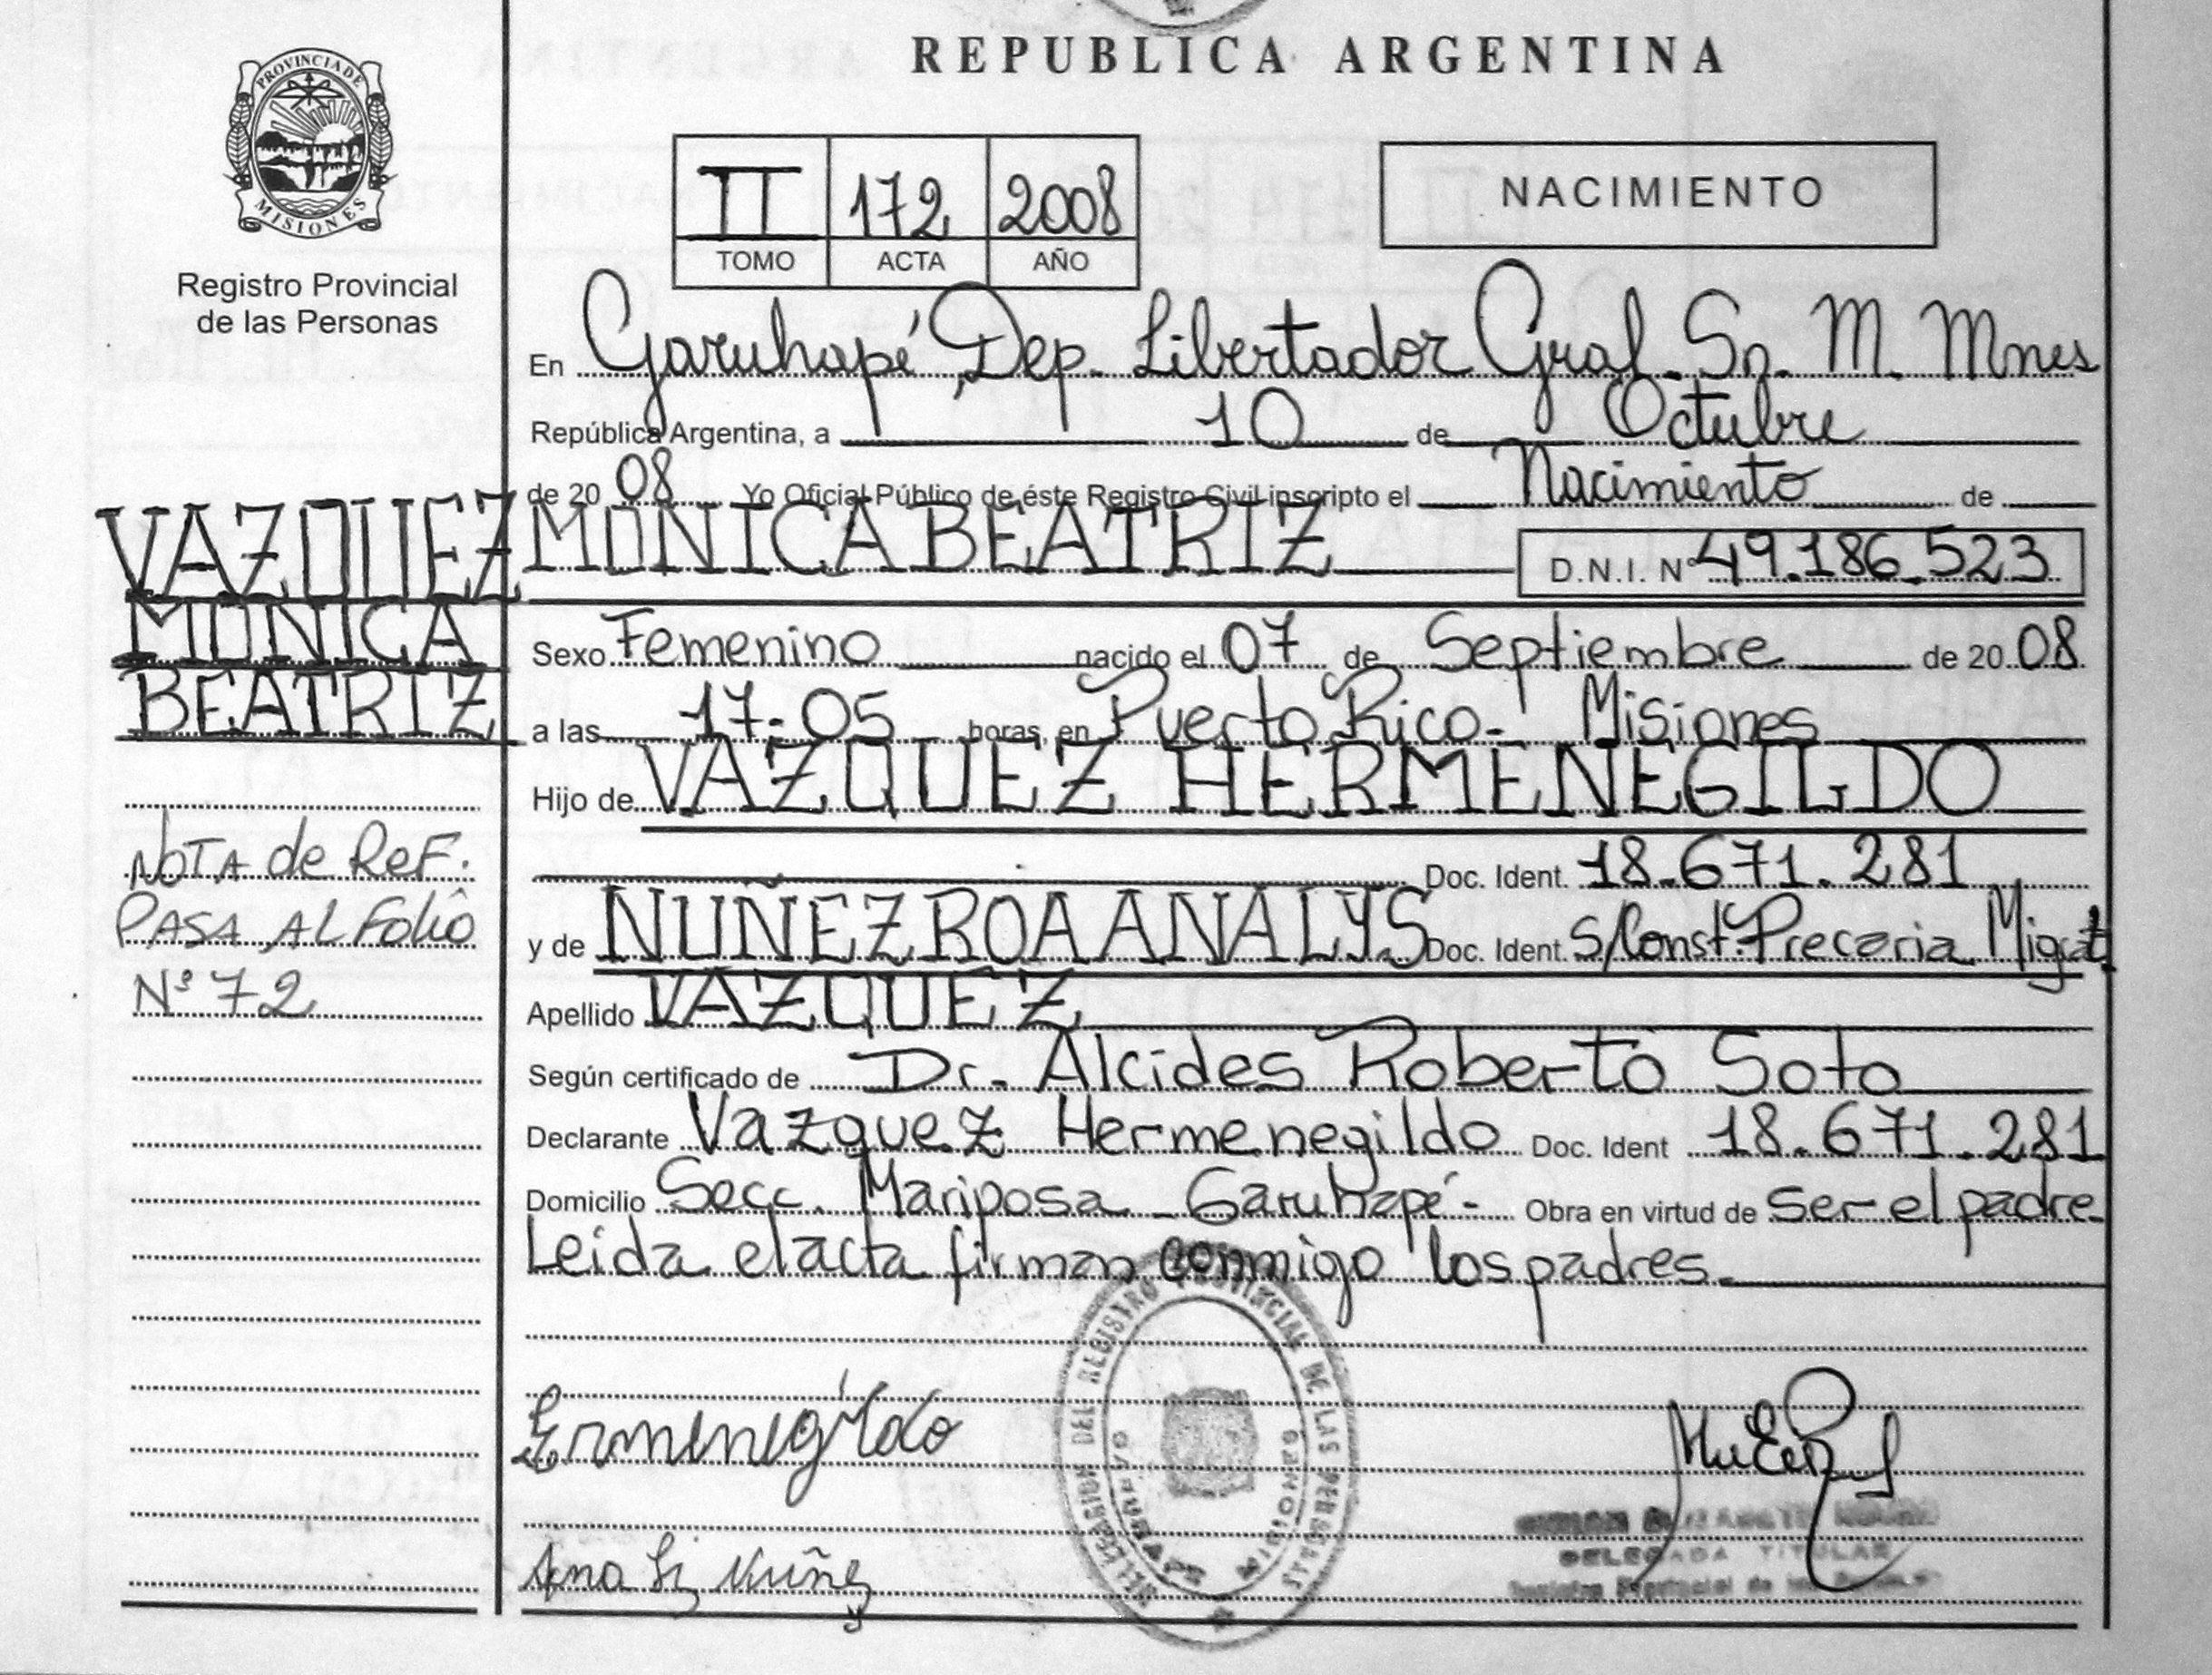 REPUBLICA ARGENTINA
PROVINCIA DE
MISIONES
Registro Provincial
de las Personas
II 172 2008
TOMO ACTA AÑO
NACIMIENTO
En Garuhapé, Dep. Libertador Gral. Sn. M. Mnes
República Argentina, a 10 de Octubre
de 20 08 Yo Oficial Público de éste Registro Civil inscripto el Nacimiento de
MONICA BEATRIZ D.N.I. Nº 49.186.523
VAZQUEZ
MONICA
BEATRIZ
NOTA de ReF.
PASA AL Folio
Nº 72
Sexo Femenino nacido el 07 de Septiembre de 20 08
a las 17-05 horas, en Puerto Rico- Misiones
Hijo de VAZQUEZ HERMENEGILDO
Doc. Ident. 18.671.281
y de NUÑEZ ROA ANALYS Doc. Ident. S/Const. Precaria Migrat.
Apellido VAZQUEZ
Según certificado de Dr. Alcides Roberto Soto
Declarante Vazquez Hermenegildo Doc. Ident 18.671.281
Domicilio Secc. Mariposa - Garuhapé- Obra en virtud de ser el padre
Leida el acta firman conmigo los padres.
DEL REGISTRO PROVINCIAL DE LAS PERSONAS
MISIONES
Ermenegildo
Ana Li Nuñez
DELEGADA TITULAR